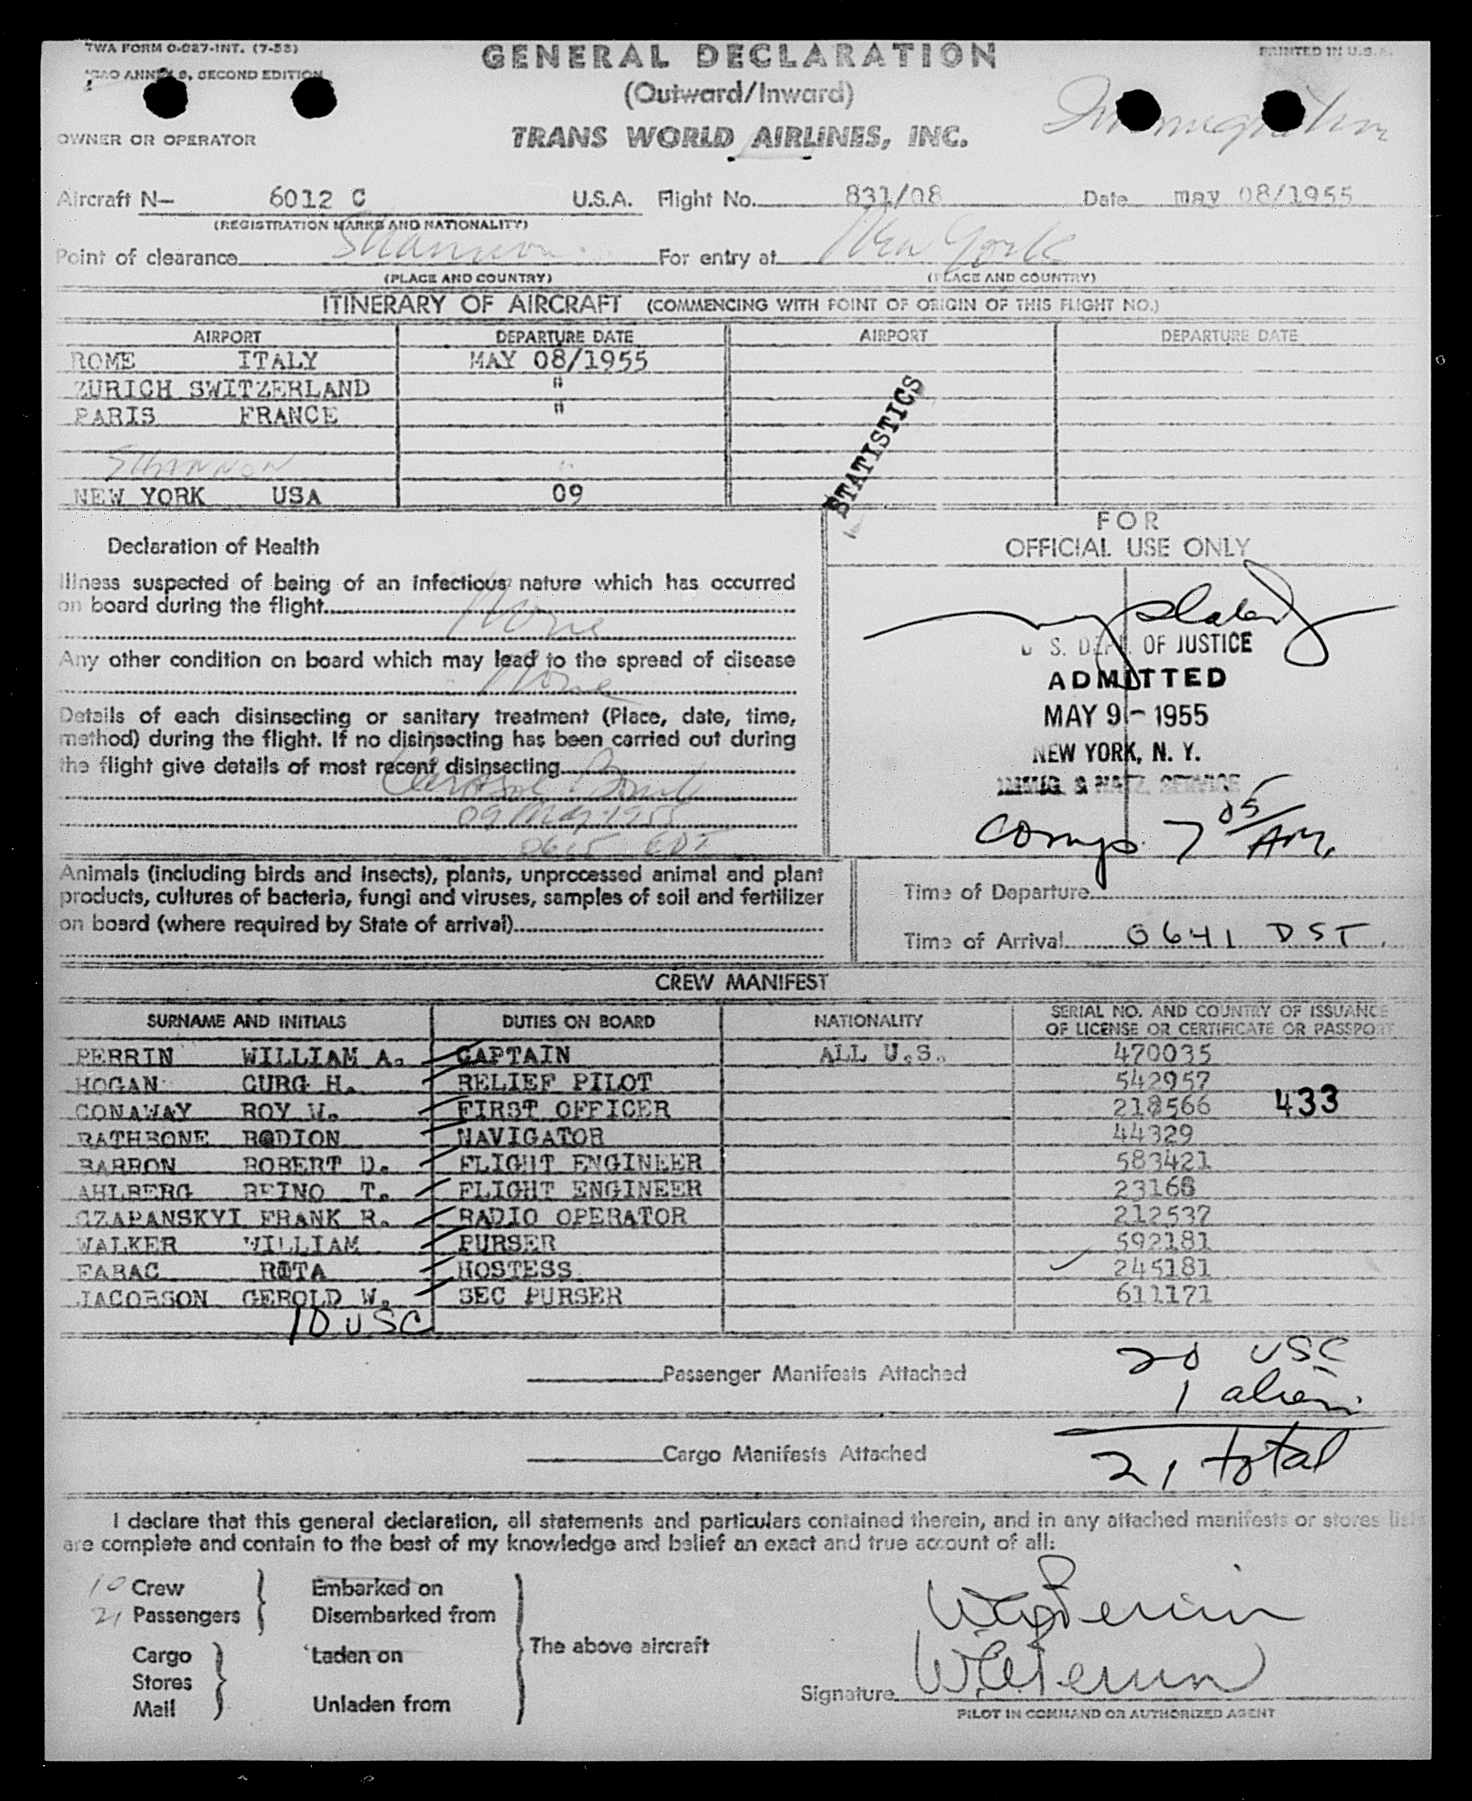 TWA FORM O-027-INT. (7-53)
GENERAL DECLARATION
PRINTED IN U.S.A.
ICAO ANNEX 9, SECOND EDITION
(Outward/Inward)
Immigration
OWNER OR OPERATOR
TRANS WORLD AIRLINES, INC.
Aircraft N- 6012 C U.S.A. Flight No. 831/08 Date may 08/1955
(REGISTRATION MARKS AND NATIONALITY)
Point of clearance Shannon For entry at New York
(PLACE AND COUNTRY) (PLACE AND COUNTRY)
ITINERARY OF AIRCRAFT (COMMENCING WITH POINT OF ORIGIN OF THIS FLIGHT NO.)
AIRPORT DEPARTURE DATE AIRPORT DEPARTURE DATE
ROME ITALY MAY 08/1955
ZURICH SWITZERLAND "
PARIS FRANCE "
SHANNON "
NEW YORK USA 09
STATISTICS
FOR
OFFICIAL USE ONLY
Declaration of Health
Illness suspected of being of an infectious nature which has occurred
on board during the flight
None
Any other condition on board which may lead to the spread of disease
None
Details of each disinsecting or sanitary treatment (Place, date, time,
method) during the flight. If no disinsecting has been carried out during
the flight give details of most recent disinsecting
Aerosol Bomb
09 May 1955
0615 EDT
U. S. DEPT. OF JUSTICE
ADMITTED
MAY 9 - 1955
NEW YORK, N. Y.
IMMIG. & NATZ. SERVICE
comp. 7 05/AM.
Animals (including birds and insects), plants, unprocessed animal and plant
products, cultures of bacteria, fungi and viruses, samples of soil and fertilizer
on board (where required by State of arrival)
Time of Departure
Time of Arrival 0641 DST.
CREW MANIFEST
SURNAME AND INITIALS DUTIES ON BOARD NATIONALITY SERIAL NO. AND COUNTRY OF ISSUANCE
OF LICENSE OR CERTIFICATE OR PASSPORT
PERRIN WILLIAM A. CAPTAIN ALL U.S. 470035
HOGAN CURG H. RELIEF PILOT 542957
CONAWAY ROY W. FIRST OFFICER 218566 433
RATHBONE RODION NAVIGATOR 44329
BARRON ROBERT D. FLIGHT ENGINEER 583421
AHLBERG REINO T. FLIGHT ENGINEER 23168
CZAPANSKYI FRANK R. RADIO OPERATOR 212537
WALKER WILLIAM PURSER 592181
FABAC RITA HOSTESS 245181
JACOBSON GEROLD W. SEC PURSER 611171
10 USC
Passenger Manifests Attached
20 USC
1 alien
Cargo Manifests Attached
21 total
I declare that this general declaration, all statements and particulars contained therein, and in any attached manifests or stores lists
are complete and contain to the best of my knowledge and belief an exact and true account of all:
10 Crew
21 Passengers
Embarked on
Disembarked from
Cargo
Stores
Mail
Laden on
Unladen from
The above aircraft
WAPerrin
Signature WAPerrin
PILOT IN COMMAND OR AUTHORIZED AGENT